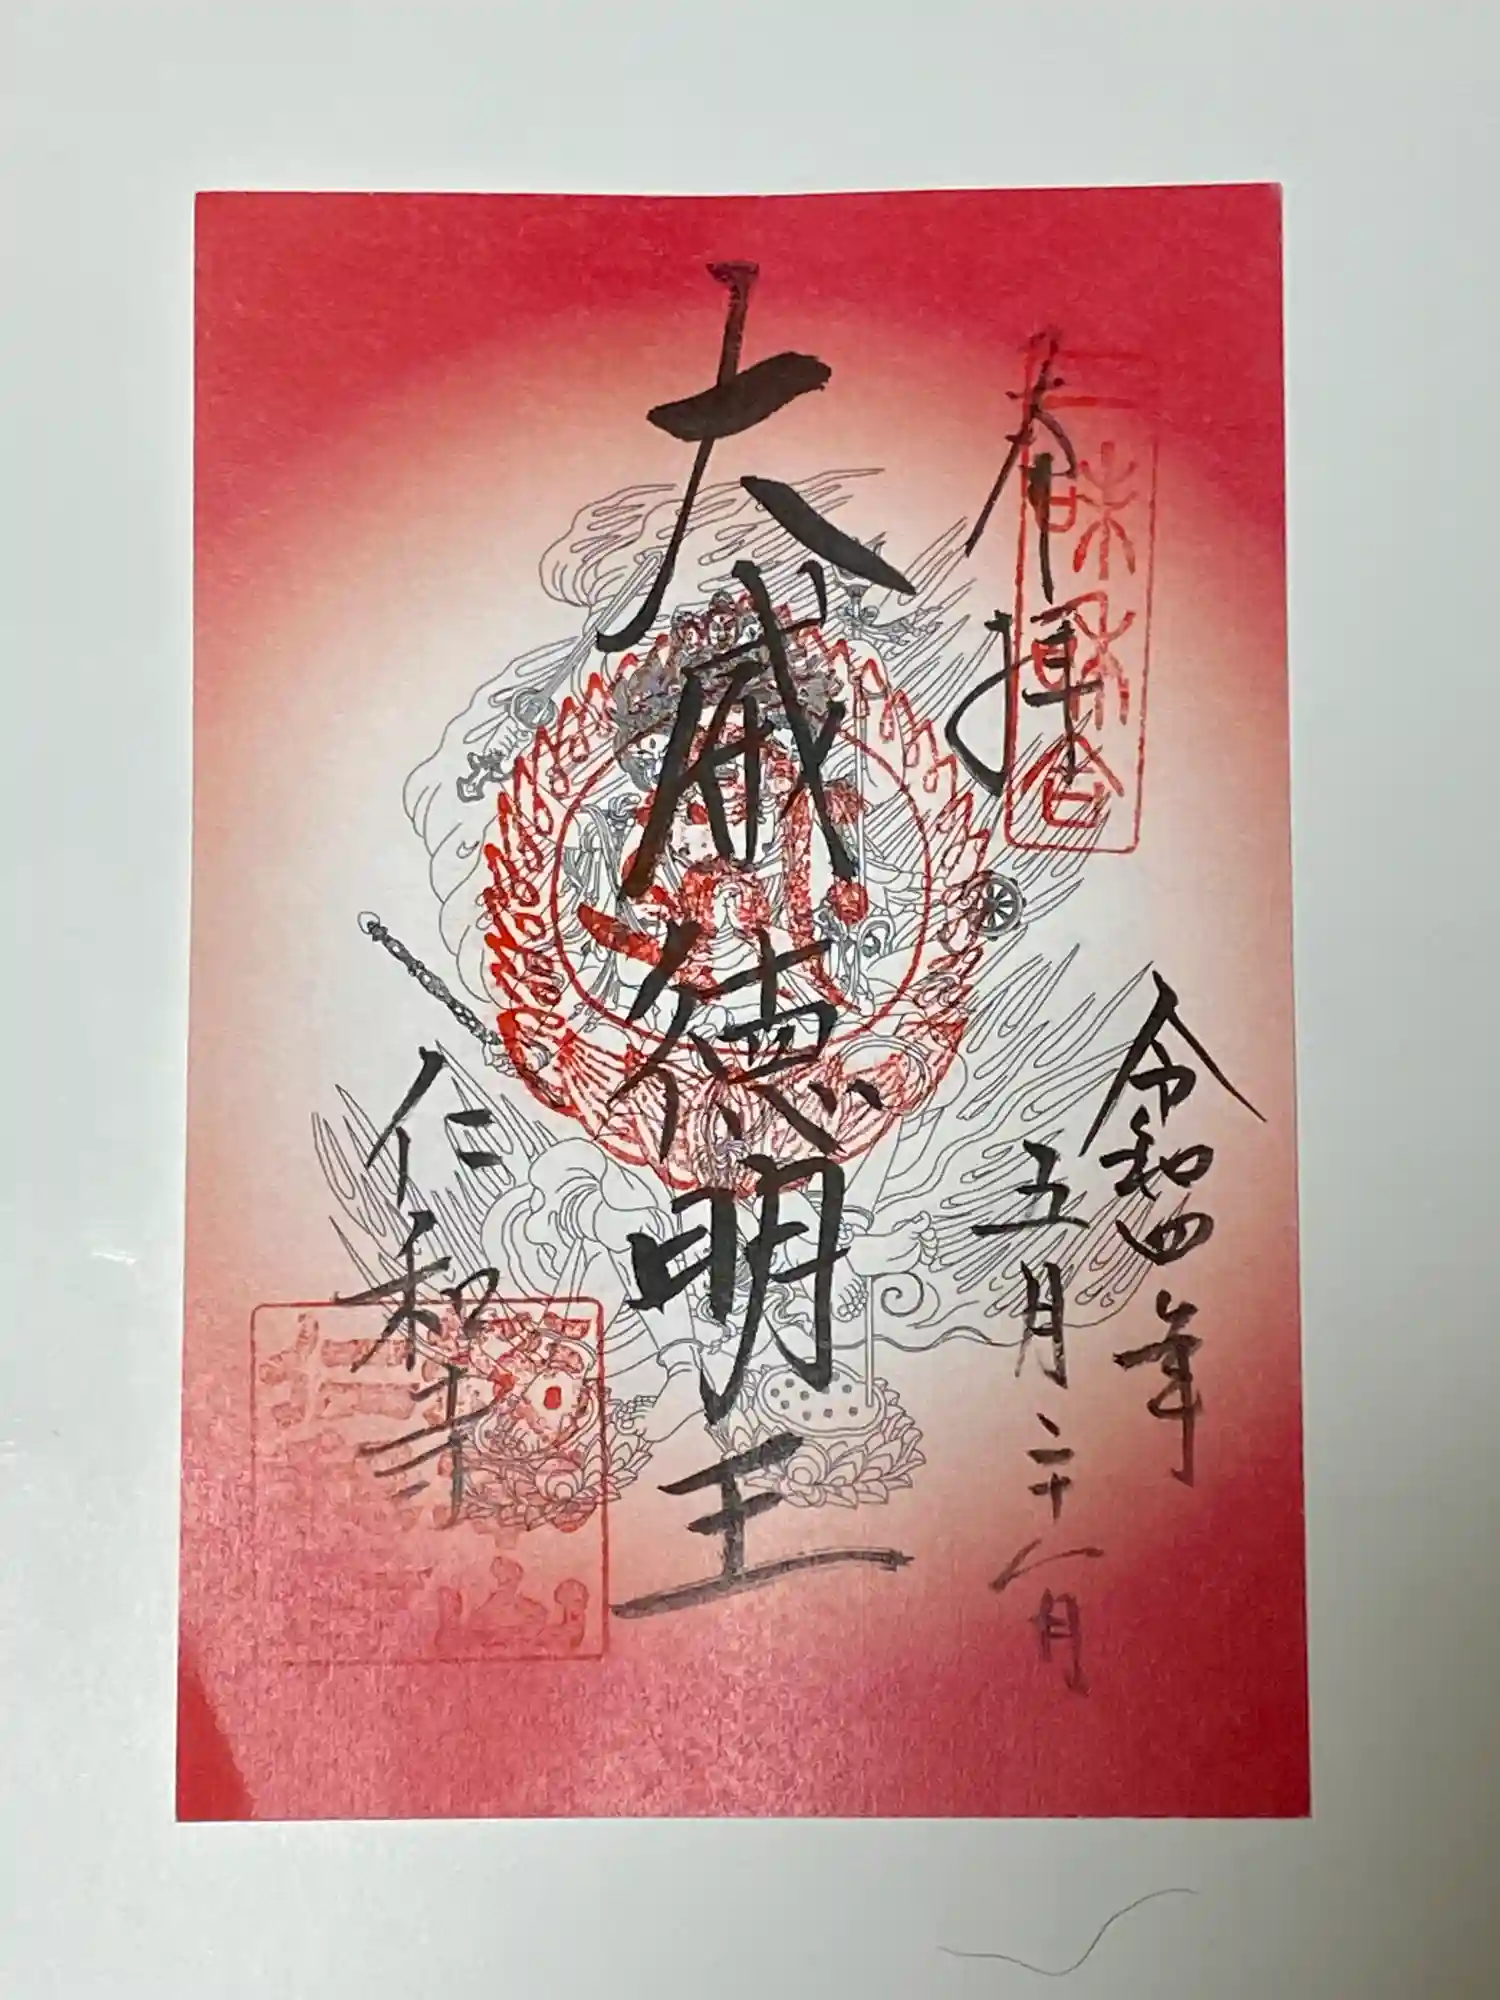 奉拝
一味和合
令和四年
五月二十八日
大威徳明王
仁和寺